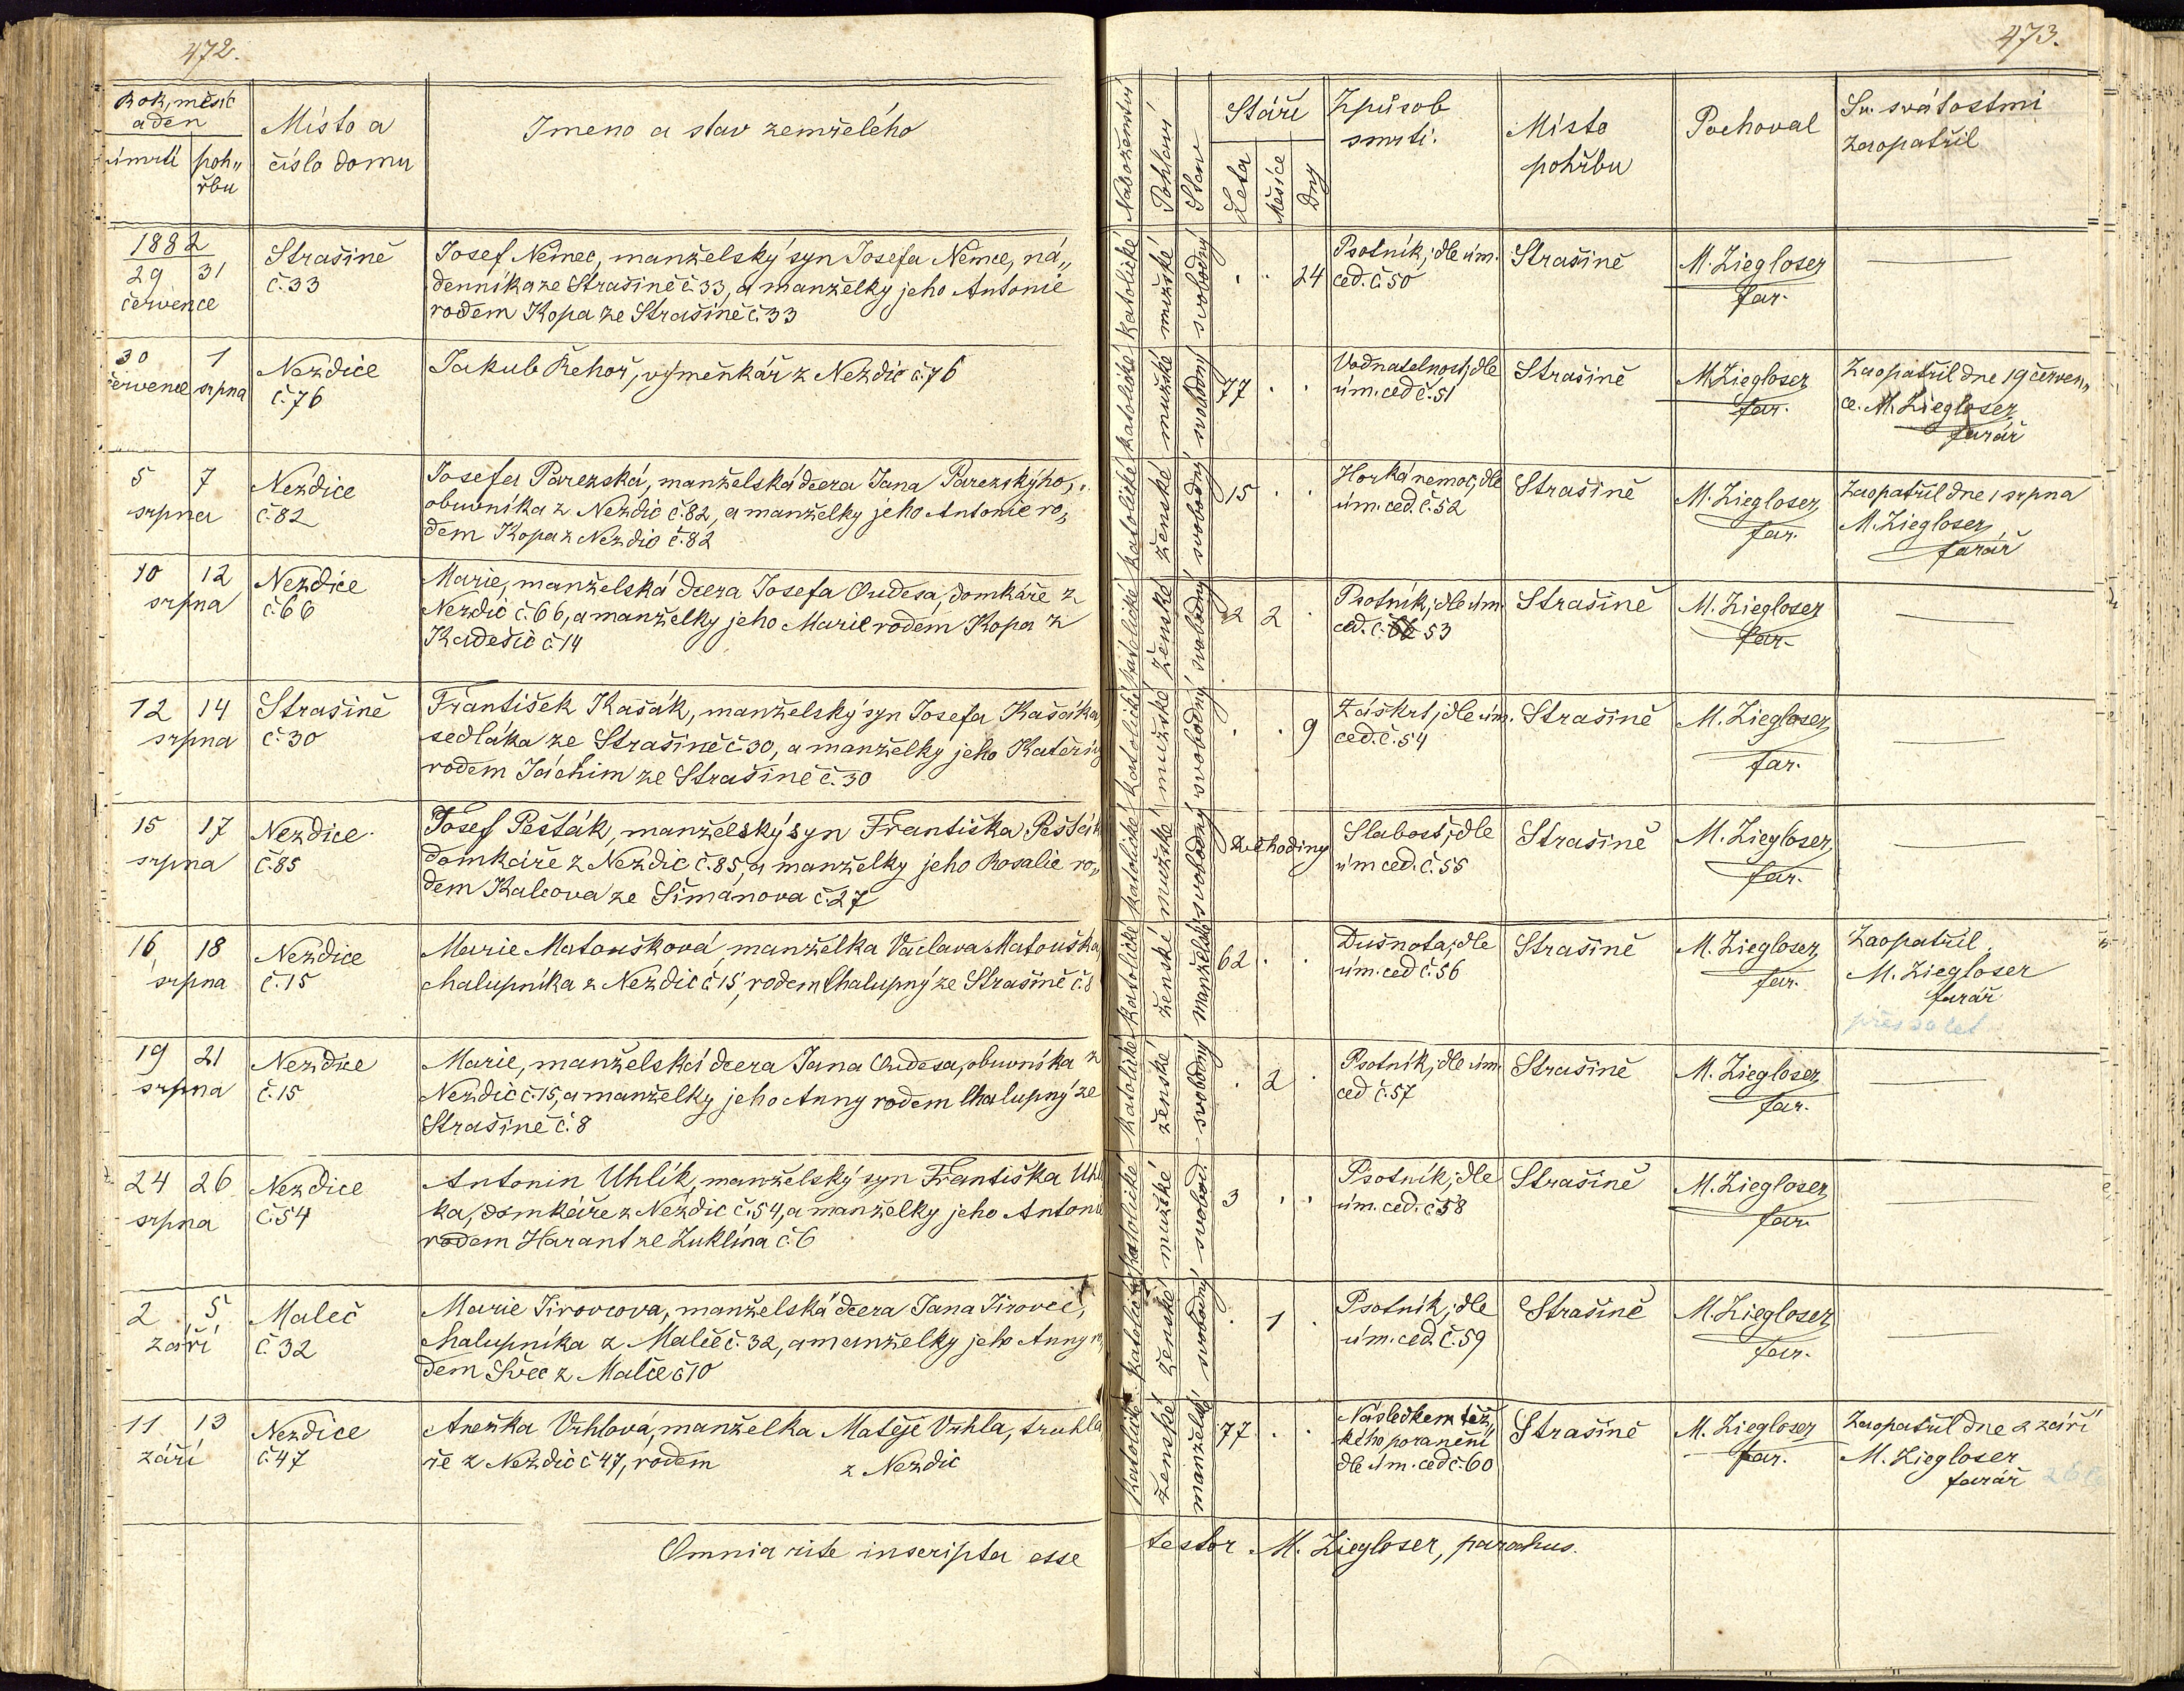 472.
Rok, měsíc
a den
úmrtí
poh„
řbu
Místo a
číslo domu
Jmeno a stav zemřelého
1882
29 31
července
Strašině
č. 33
Josef Němec, manželský syn Josefa Němce, ná„
denníka ze Strašině č. 33, a manželky jeho Antonie
rodem Kopa ze Strašině č. 33
30 1
července srpna
Nezdice
č. 76
Jakub Řehoř, výměnkář z Nezdic č. 76
5 7
srpna
Nezdice
č. 82
Josefa Parezská, manželská dcera Jana Parezskýho,
obuvníka z Nezdic č. 82, a manželky jeho Antonie ro„
dem Kopa z Nezdic č. 82
10 12
srpna
Nezdice
č. 66
Marie, manželská dcera Josefa Oudesa, domkáře z
Nezdic č. 66, a manželky jeho Marie rodem Kopa z
Kadešic č 14
12 14
srpna
Strašině
č. 30
František Kašák, manželský syn Josefa Kašáka
sedláka ze Strašině č. 30, a manželky jeho Kateřiny
rodem Jáchim ze Strašině č. 30
15 17
srpna
Nezdice
č. 85
Josef Pešták, manželský syn Františka Pešták
domkáře z Nezdic č. 85, a manželky jeho Rosalie ro„
dem Kalcova ze Šimanova č. 27
16 18
srpna
Nezdice
č. 15
Marie Matoušková, manželka Václava Matouška,
chalupníka z Nezdic č 15, rodem Chalupný ze Strašině č. 8
19 21
srpna
Nezdice
č. 15
Marie, manželská dcera Jana Oudesa, obuvníka z
Nezdic č. 15, a manželky jeho Anny rodem Chalupný ze
Strašině č. 8
24 26
srpna
Nezdice
č. 54
Antonin Uhlík, manželský syn Františka Uhlí
ka, domkáře z Nezdic č. 54, a manželky jeho Antonie
rodem Harant ze Žuklína č. 6
2 5
září
Maleč
č 32
Marie Jirovcova, manželská dcera Jana Jirovec,
chalupníka z Malče č. 32, a manželky jeho Anny ro
dem Švec z Malče č 10
11 13
září
Nezdice
č. 47
Anežka Vrhlová, manželka Matěje Vrhla, truhla
ře z Nezdic č 47, rodem z Nezdic
Omnia rite inscripta esse
473.
Naboženství
Pohlaví
Stav
Stáří
Leta
Měsíce
Dny
Způsob
smrti.
Místo
pohřbu
Pochoval
Sv. svátostmi
zaopatřil
katolické mužské svobodný
24
Psotník; dle úm.
ced. č. 50
Strašině
M. Ziegloser
far.
katolické mužské svobodný
77
Vodnatelnost; dle
úm. ced č. 51
Strašině
M. Ziegloser
far.
Zaopatřil dne 19 červen„
ce. M. Ziegloser
farář
katolické ženské svobodný
15
Horká nemoc; dle
úm. ced. č. 52
Strašině
M. Ziegloser
far.
Zaopatřil dne 1 srpna
M. Ziegloser
farář
katolické ženské svobodný
2 2
Psotník; dle úm.
ced. č. 53
Strašině
M. Ziegloser
far.
katolické mužské svobodný
9
Záškrt; dle úm.
ced. č. 54
Strašině
M. Ziegloser
far.
katolické mužské svobodný
2 hodiny
Slabost; dle
úm ced. č. 55
Strašině
M. Ziegloser
far.
katolické ženské manželský
62
Dušnota; dle
úm. ced č. 56
Strašině
M. Ziegloser
far.
Zaopatřil
M. Ziegloser
farář
katolické ženské svobodný
2
Psotník; dle úm.
ced č. 57
Strašině
M. Ziegloser
far.
katolické mužské svobod.
3
Psotník; dle
úm. ced. č 58
Strašině
M. Ziegloser
far.
katolické ženské svobodný
1
Psotník; dle
úm. ced. č. 59
Strašině
M. Ziegloser
far.
katolické ženské manželský
77
Následkem těž„
kého poranění
dle úm. ced č. 60
Strašině
M. Ziegloser
far.
Zaopatřil dne 2 září
M. Ziegloser
farář
testor M. Ziegloser, parochus.